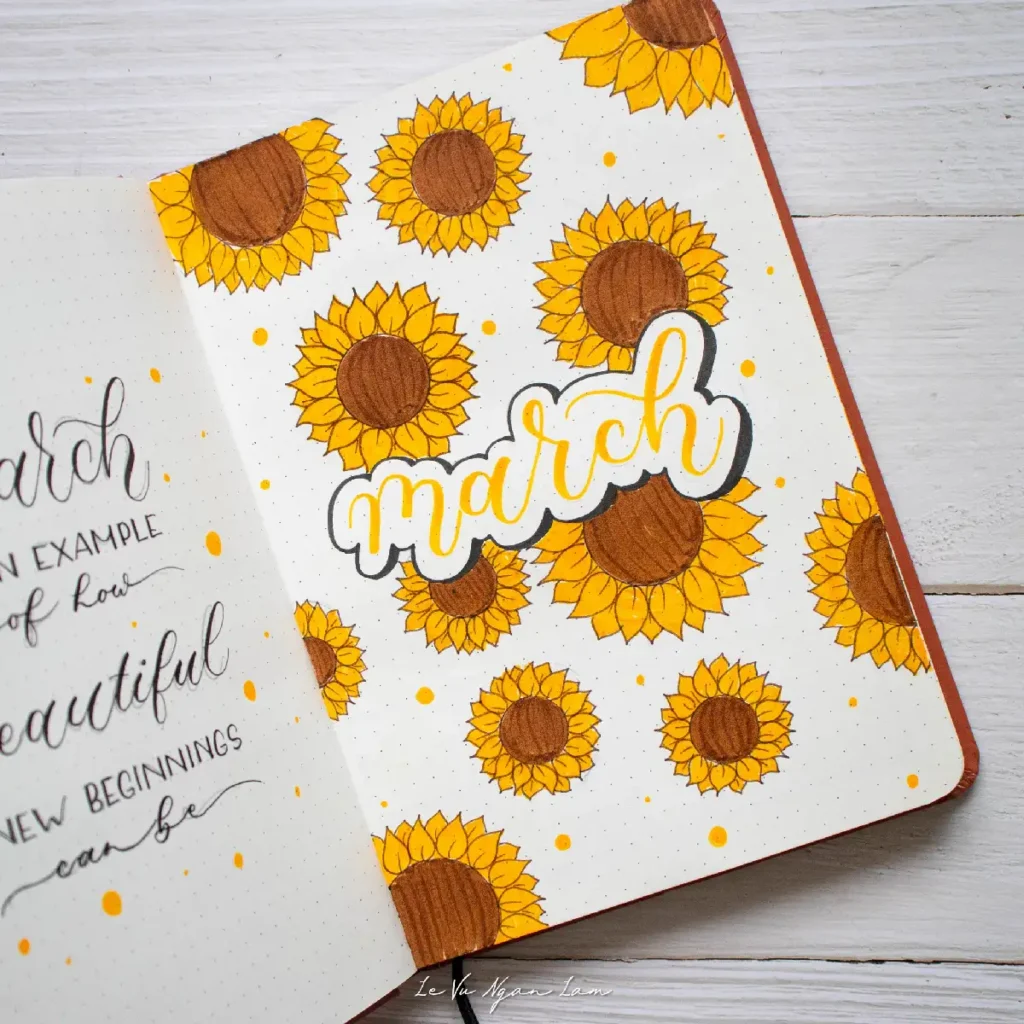 arch
N EXAMPLE
of how
eautiful
NEW BEGINNINGS
can be
march
Le Vu Ngan Lam